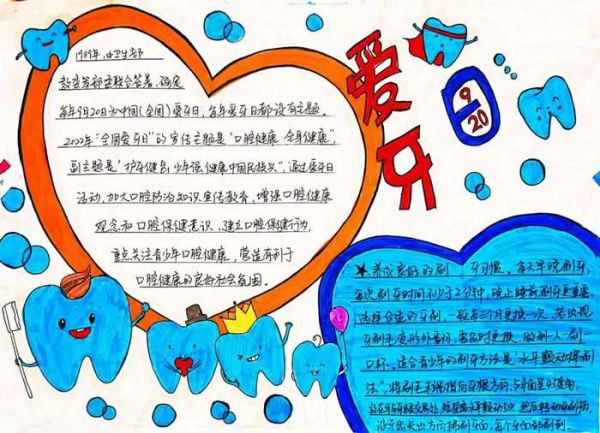 1989年,由卫生部
教育部等部委联合签署,确定
每年9月20日为中国(全国)爱牙日,每年爱牙日都设有主题。
2022年"全国爱牙日"的宣传主题是"口腔健康,全身健康",
副主题是"护牙健齿 少年强 健康中国民族兴",通过爱牙日
活动,加大口腔防治知识宣传教育,增强口腔健康
观念和口腔保健意识,建立口腔保健行为,
重点关注青少年口腔健康,营造有利于
口腔健康的良好社会氛围。
爱牙
9/20
★养成良好的刷牙习惯。每天早晚刷牙,
每次刷牙时间不少于2分钟,晚上睡前刷牙更重要。
选择合适的牙刷,一般每三个月更换一次,若出现
刷毛变形外翻,需及时更换,做到一人一刷一
口杯,适合青少年的刷牙方法是"水平颤动拂刷
法",将刷毛末端指向牙根方向,与牙面呈45度角,
然后转动牙刷柄,
沿牙齿长轴方向拂刷牙面,每个牙面都刷到。